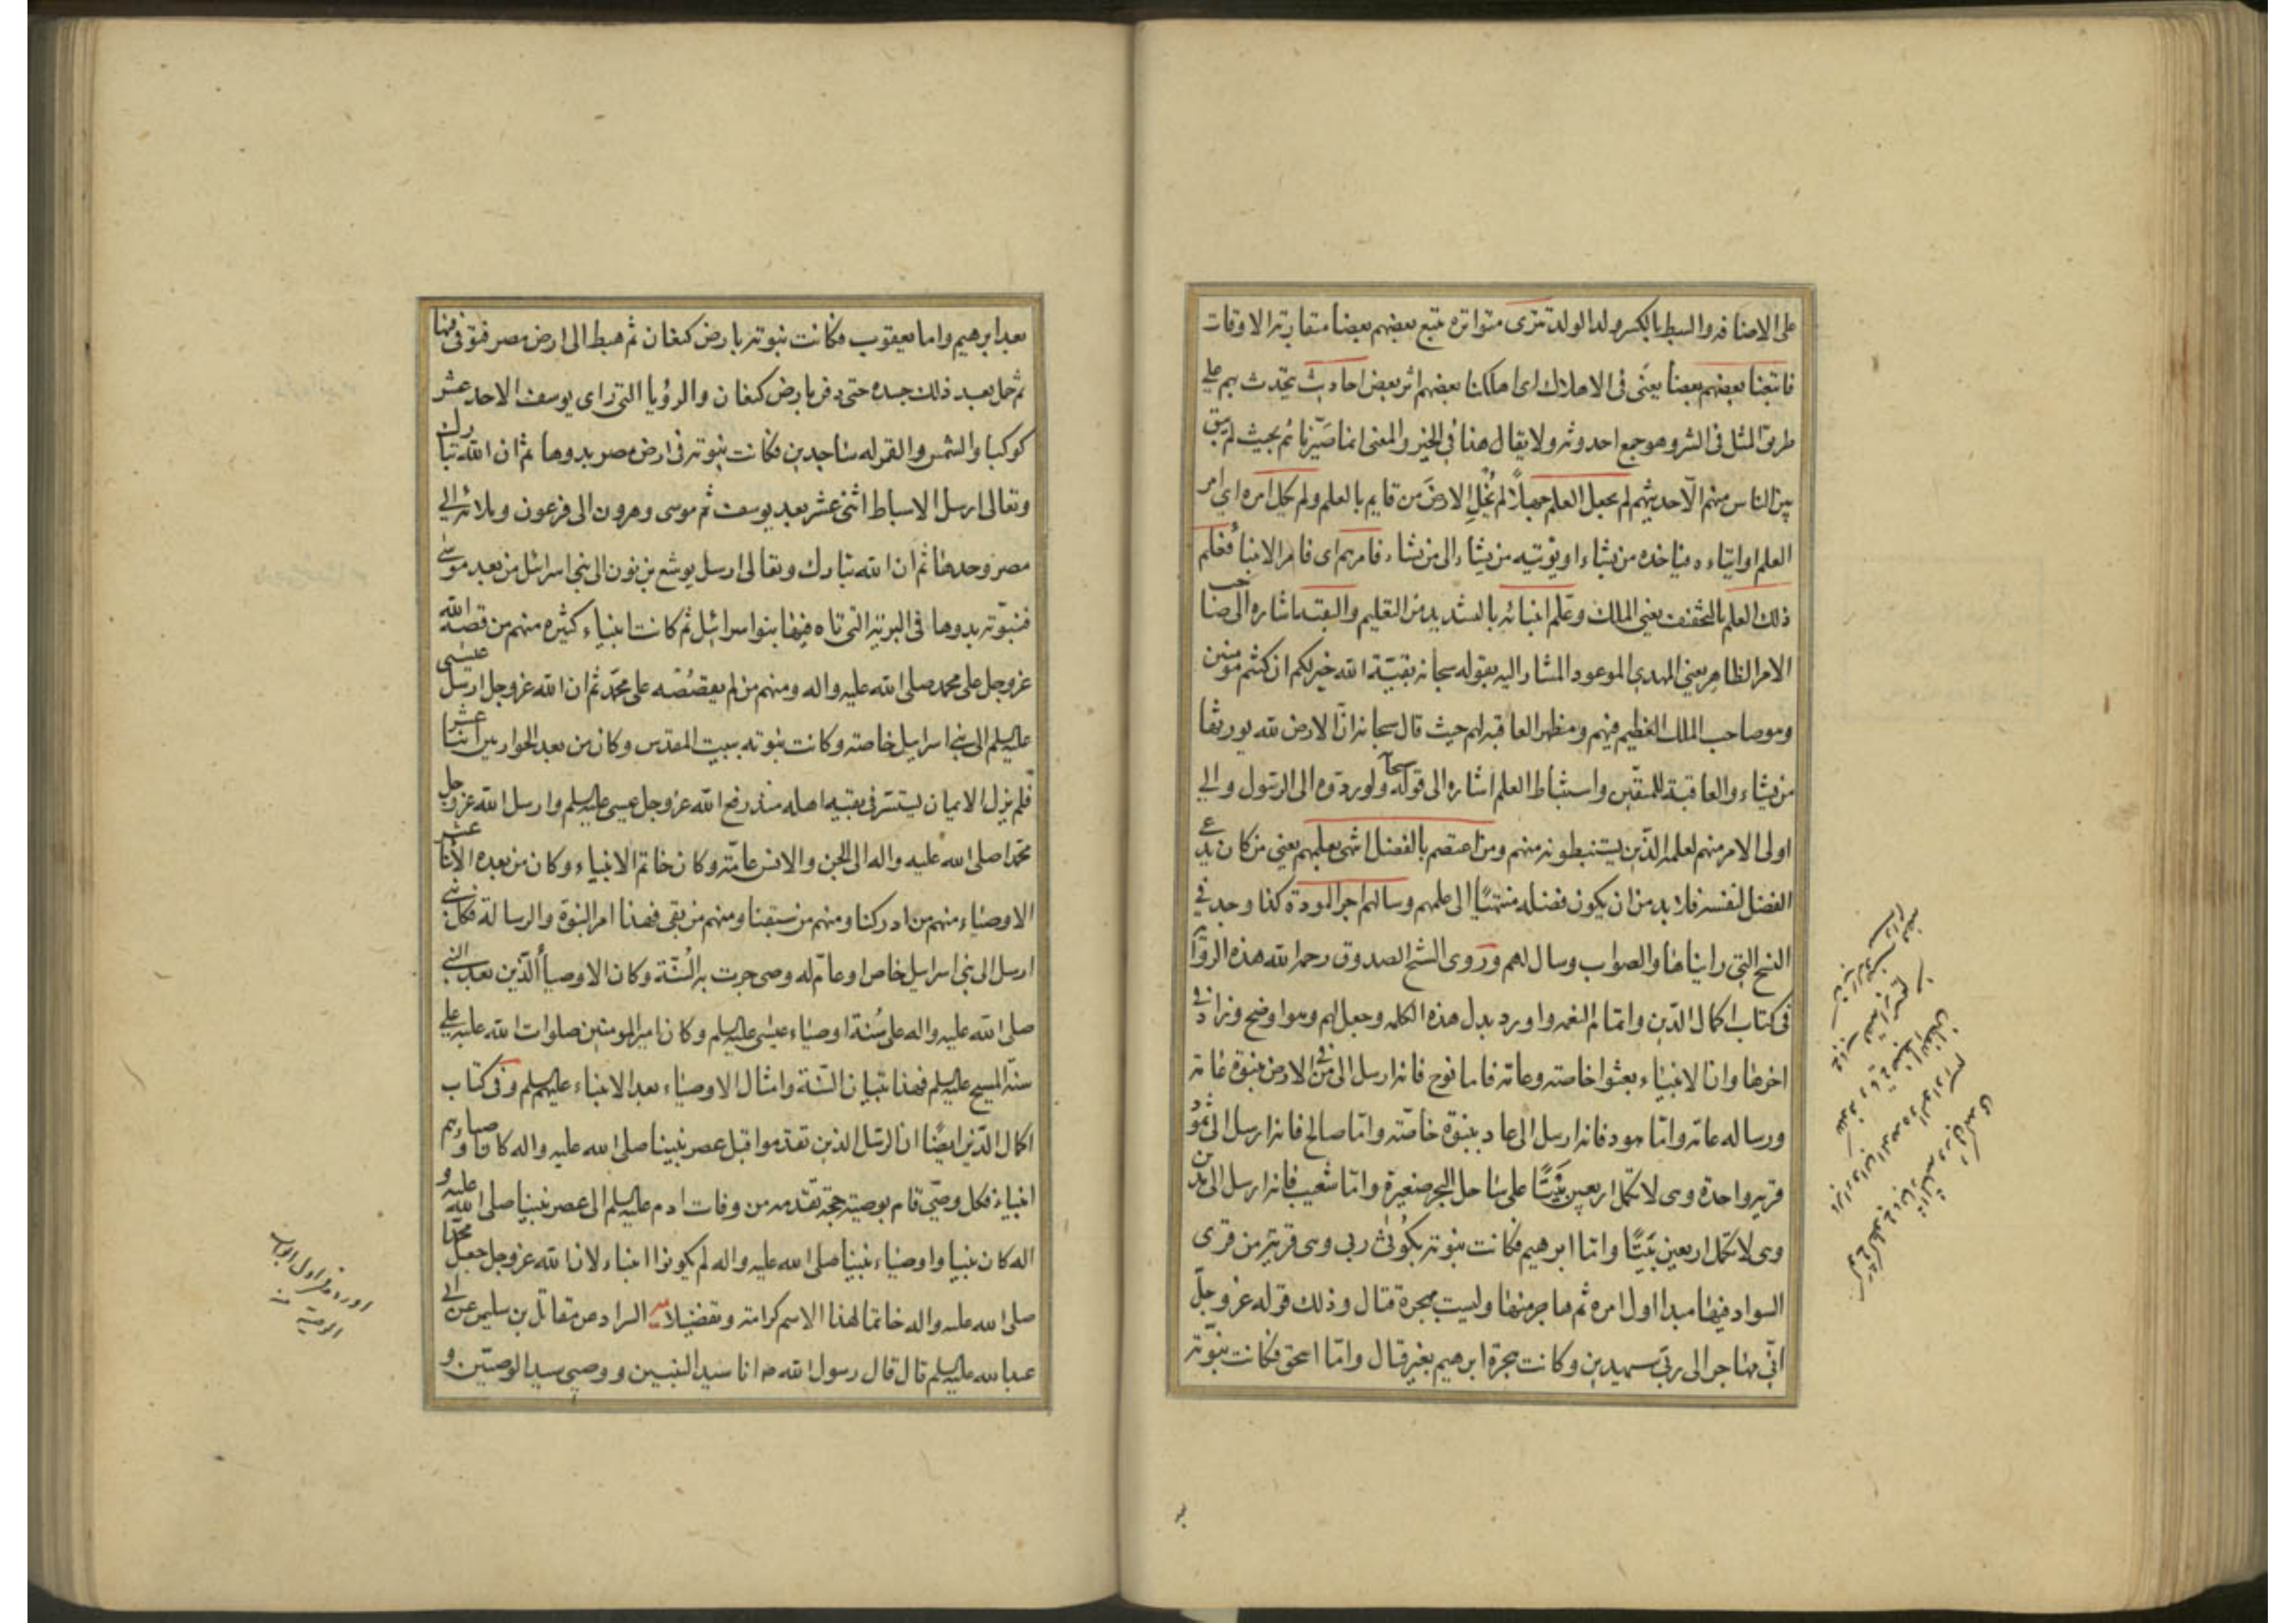 على الاضافه والسبط بالكسر ولد الولد تترى متواتره تتبع بعضهم بعضا متقاربة الاوقات
فاتبعنا بعضهم بعضا يعنى فى الاهلاك اى اهلكنا بعضهم اثر بعض احاديث يتحدث بهم على
طريق المثل فى الشر وهو جمع احدوثه ولا يقال هذا فى الخير والمعنى انما صيّرناهم بحيث لم يبق
بين الناس منهم الّا حديثهم لم يجعل العلم جهلاً لم يُخْلِ الارضَ من قايم بالعلم ولم يكل امره اى امر
العلم او ايتاءه فياخذه من يشاء او يؤتيه من يشاء الى من يشاء فامرهم اى فامر الانبياء فعَلم
ذلك العلم بالتخفيف يعنى الملك وعَلّم انبيائه بالتشديد من التعليم والبقية اشاره الى صاحب
الامر الظاهر يعنى المهدى الموعود المشار اليه بقوله سبحانه بقيّة الله خير لكم ان كنتم مؤمنين
وهو صاحب الملك العظيم فيهم ومظهر العاقبه لهم حيث قال سبحانه انّ الارض لله يورثها
من يشاء والعاقبة للمتقين واستنباط العلم اشاره الى قوله سبحا ولو ردّوه الى الرسول والى
اولى الامر منهم لعلمه الذين يستنبطونه منهم ومن اعتصم بالفضل انتهى بعلمهم يعنى من كان يدعى
الفضل لنفسه فلا بد من ان يكون فضله منتهيًا الى علمهم وسالهم اجر المودة كذا وجد فى
النسخ التى رايناها والصواب وسال لهم وروى الشيخ الصدوق رحمه الله هذه الرواية
فى كتاب اكمال الدين واتمام النعمه واورد بدل هذه الكلمه وجعل لهم وهو اوضح وزاد فى
اخرها وان الانبياء بعثوا خاصته وعامه فاما نوح فانه ارسل الى من فى الارض بنبوة عامه
ورساله عامه وامّا هود فانه ارسل الى عاد بنبوة خاصّة وامّا صالح فانه ارسل الى ثمود
قريه واحدة وهى لا تكمل اربعين بَيْتًا على ساحل البحر صغيرة وامّا شعيب فانه ارسل الى مدين
وهى لا تكمل اربعين بَيْتًا وامّا ابرهيم فكانت نبوته بكُوثى ربى وهى قرية من قرى
السواد فيها مبدا اول امره ثم هاجر منها وليست بهجرة قتال وذلك قوله عز وجلّ
انّى مهاجر الى ربّى سيهدين وكانت هجرة ابرهيم بغير قتال وامّا اسحق فكانت نبوته
بعد ابرهيم واما يعقوب فكانت نبوته بارض كنعان ثم هبط الى ارض مصر فتوفى فيها
ثم حمل بعد ذلك جسده حتى دفن بارض كنعان والرؤيا التى راى يوسف الاحد عشر
كوكبا والشمس والقمر له ساجدين فكانت نبوته فى ارض مصر بدوها ثم ان الله تبارك
وتعالى ارسل الاسباط اثنى عشر بعد يوسف ثم موسى وهرون الى فرعون وملائه الى
مصر وحدها ثم ان الله تبارك وتعالى ارسل يوشع بن نون الى بنى اسرائل من بعد موسى
فنبوّته بدوها فى البرية التى تاه فيها بنوا اسرائيل ثم كانت انبياء كثيره منهم من قصه الله
عز وجل على محمد صلى الله عليه واله ومنهم من لم يقصُصْه على محمّد ثم ان الله عز وجل ارسل عيسى
عليه السلم الى بنى اسرايل خاصته وكانت نبوته ببيت المقدس وكان من بعد الحواريين اثنا عشر
فلم يزل الايمان يستتر فى بقية اهله منذ رفع الله عز وجل عيسى عليه السلم وارسل الله عز وجل
محمدا صلى الله عليه واله الى الجن والانس عامّه وكان خاتم الانبياء وكان من بعده الاثنا عشر
الاوصياء منهم من ادركنا ومنهم من سبقنا ومنهم من بقى فهذا امر النبوة والرسالة فكل نبى
ارسل الى بنى اسرايل خاص او عامّ له وصى جرت به السُنّة وكان الاوصيأ الذين بعد النبى
صلى الله عليه واله على سُنة اوصياء عيسى عليه السلم وكان امير المومنين صلوات الله عليه على
سنّة المسيح عليه السلم فهذا تبيان السّنة وامثال الاوصياء بعد الانبياء عليهم السلم وفى كتاب
اكمال الدّين ايضًا ان الرسل الذين تقدموا قبل عصر نبينا صلى الله عليه واله كان اوصياءهم
انبياء فكل وصّى قام بوصية حجة تقدمه من وفات ادم عليه السلم الى عصر نبينا صلى الله عليه و
اله كان نبيا واوصياء نبينا صلى الله عليه واله لم يكونوا انبياء لان الله عز وجل جعل محمدا
صلى الله عليه واله خاتما لهذا الاسم كرامة وتفضيلا يه السراد عن مقاتل بن سليمن عن ابى
عبد الله عليه السلم قال قال رسول الله ص انا سيد النبيين ووصيى سيد الوصيّين و
اورده فى اول ابواب
الوصية منه